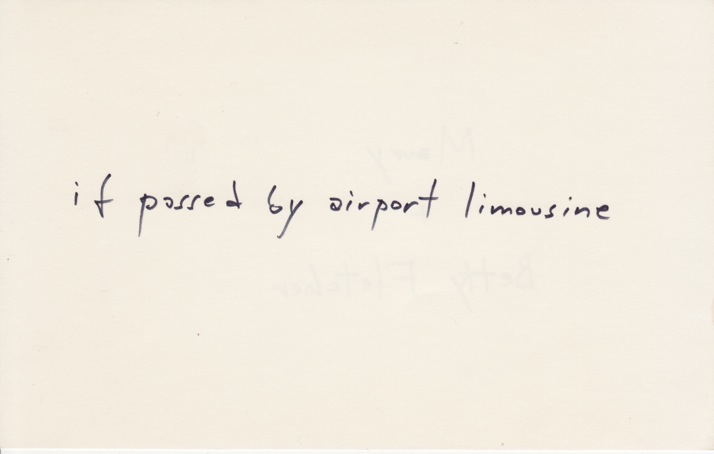 if passed by airport limousine
Betty Fletcher